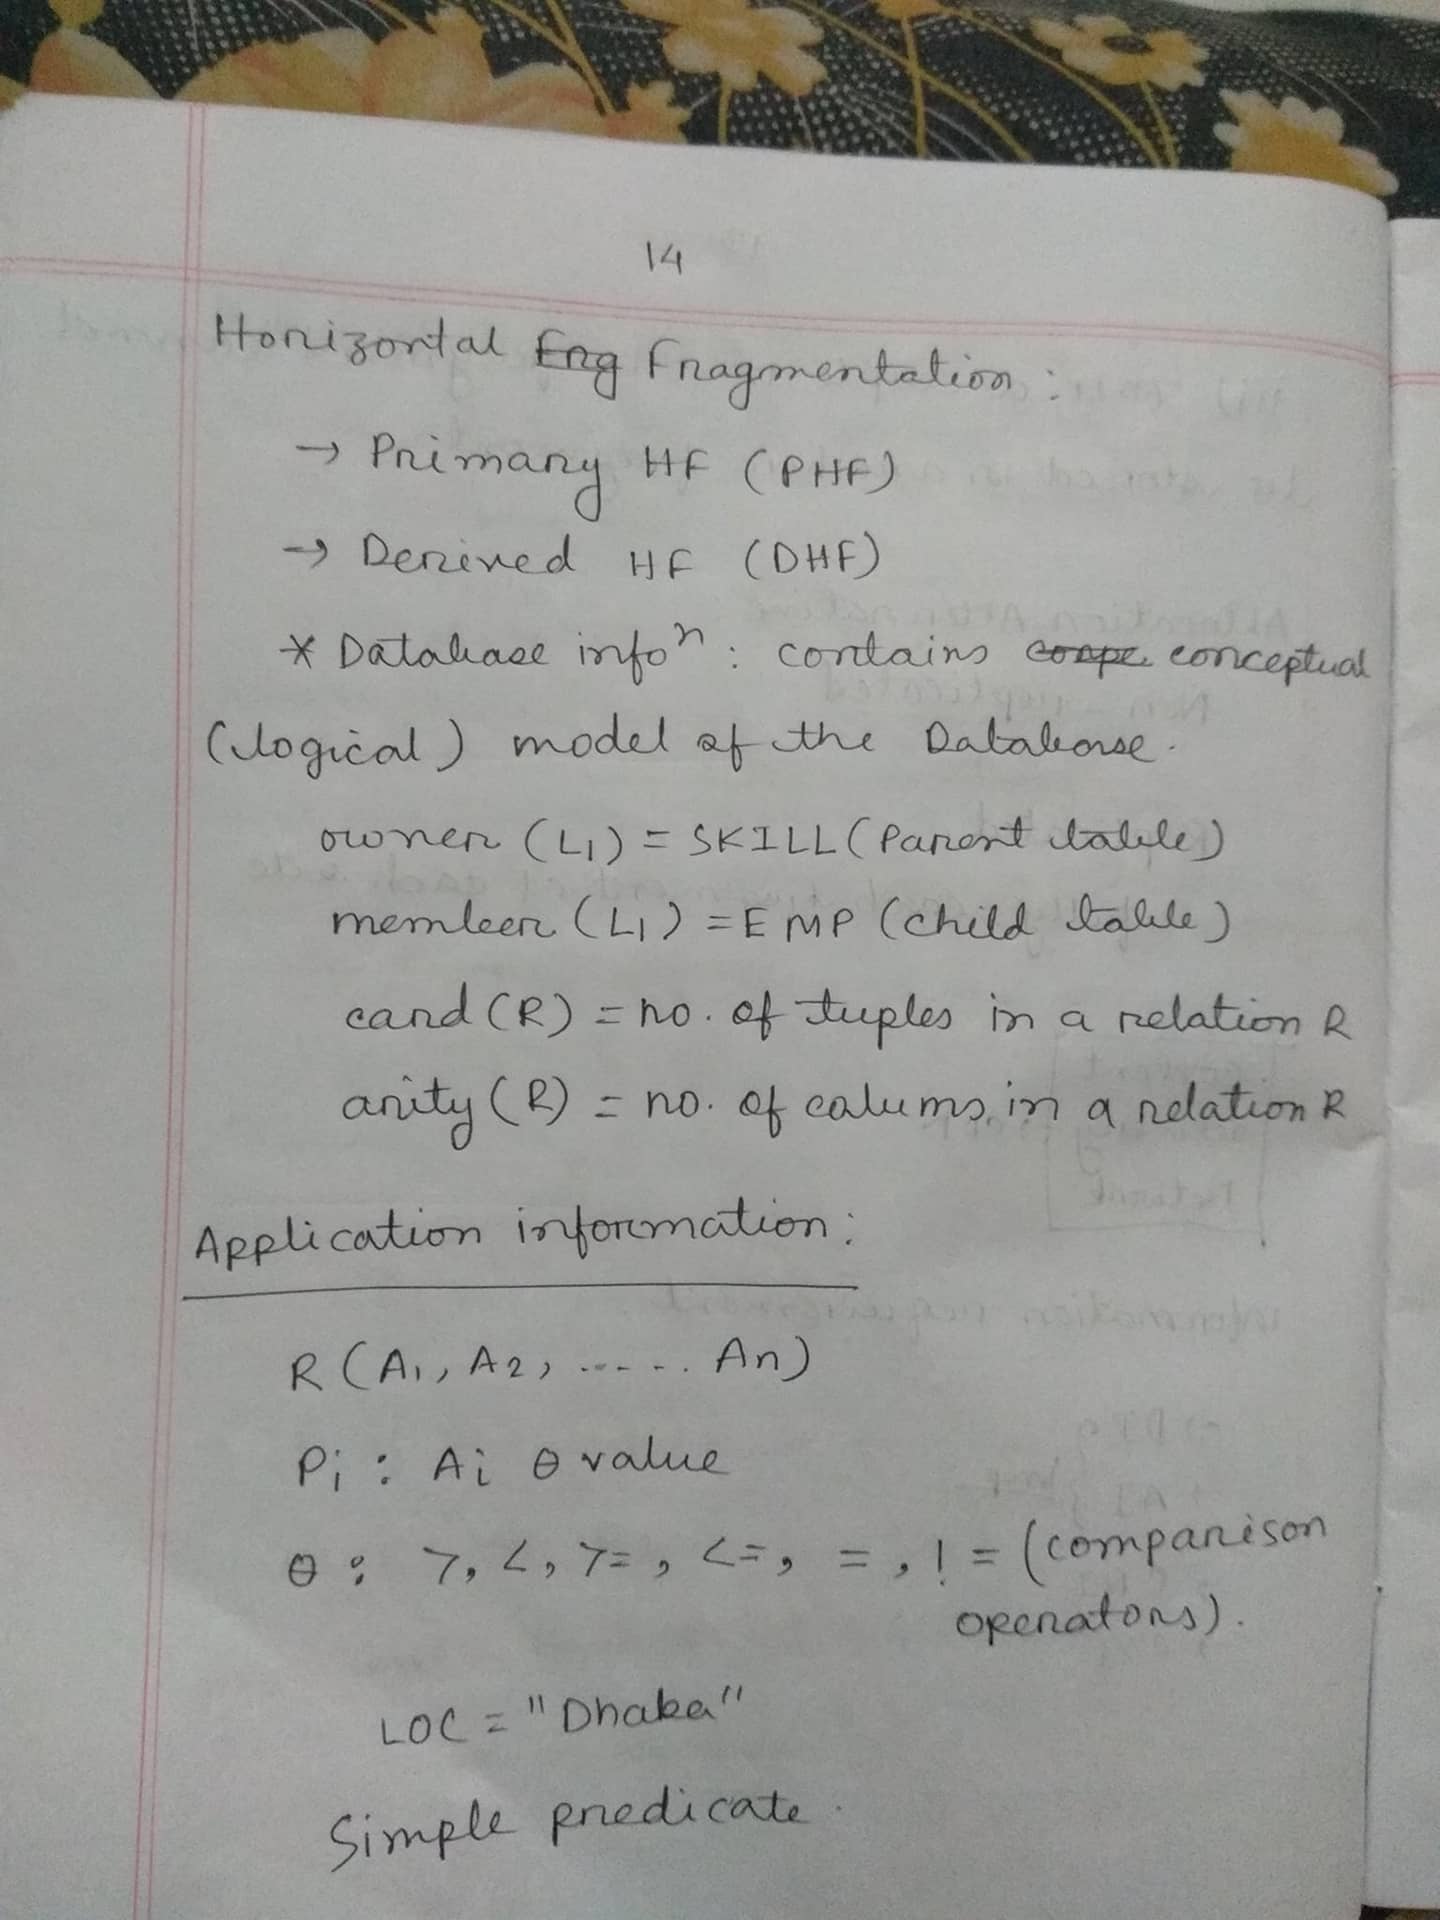 14
Horizontal Frg Fragmentation:
→ Primary HF (PHF)
→ Derived HF (DHF)
* Database infoⁿ : contains conpe conceptual
(logical) model of the Database.
owner (L1) = SKILL (Parent table)
member (L1) = EMP (child table)
card (R) = no. of tuples in a relation R
arity (R) = no. of colums in a relation R
Application information:
R (A1, A2, ...... An)
Pj : Ai θ value
θ : >, <, >=, <=, =, != (comparison
operators).
LOC = "Dhaka"
Simple predicate.